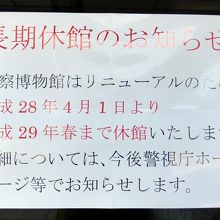 長期休館のお知らせ
察博物館はリニューアルのため
成28年4月1日より
成29年春まで休館いたします
細については、今後警視庁ホー
ージ等でお知らせします。